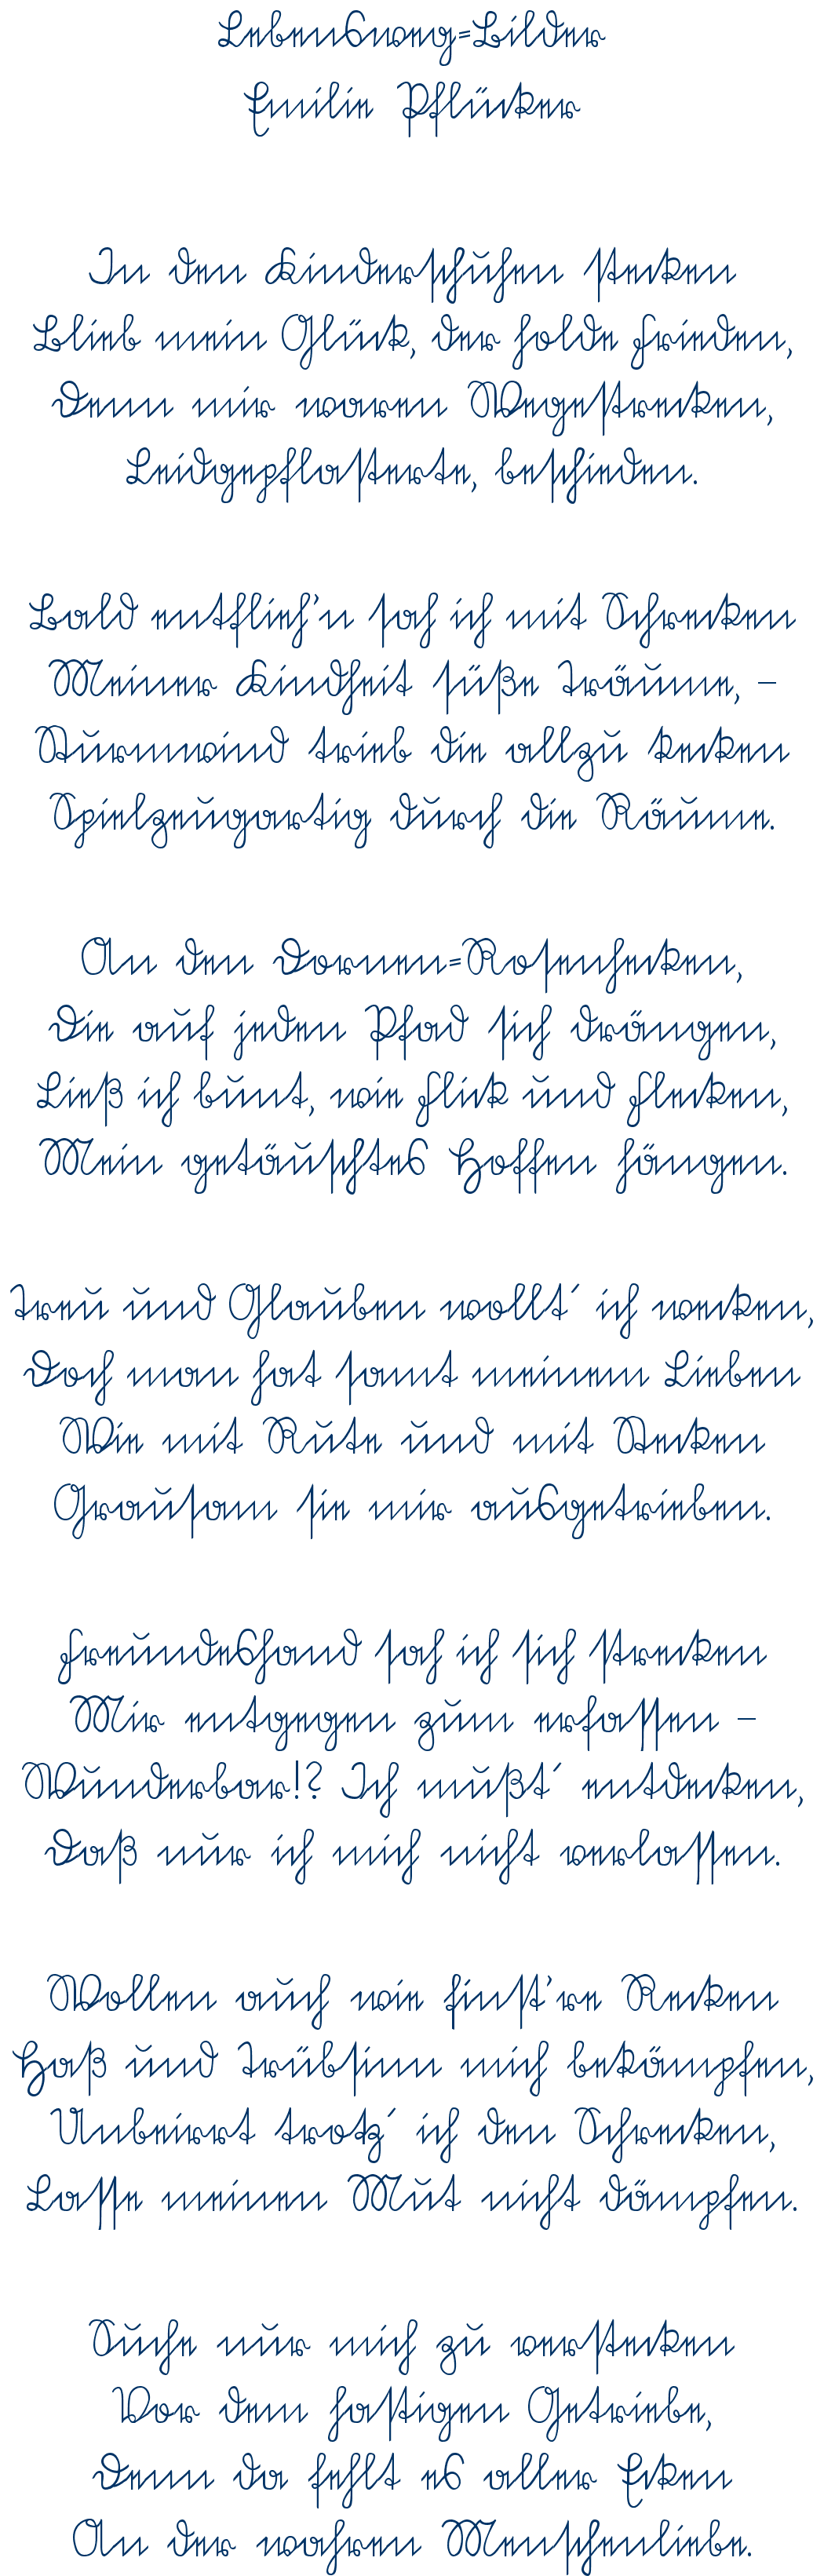 Lebensweg=Bilder
Emilie Pflücker
In den Kinderschuhen stecken
Blieb mein Glück, der holde Frieden,
Denn mir waren Wegestrecken,
Leidgepflasterte, beschieden.
Bald entflieh'n sah ich mit Schrecken
Meiner Kindheit süße Träume, –
Sturmwind trieb die allzu kecken
Spielzeugartig durch die Räume.
An den Dornen=Rosenhecken,
Die auf jeden Pfad sich drängen,
Ließ ich bunt, wie Flick und Flecken,
Mein getäuschtes Hoffen hängen.
Treu und Glauben wollt´ ich wecken,
Doch man hat samt meinem Lieben
Wie mit Rute und mit Stecken
Grausam sie mir ausgetrieben.
Freundeshand sah ich sich strecken
Mir entgegen zum erfassen –
Wunderbar!? Ich mußt´ entdecken,
Daß nur ich mich nicht verlassen.
Wollen auch wie finst're Recken
Haß und Trübsinn mich bekämpfen,
Unbeirrt trotz´ ich den Schrecken,
Lasse meinen Mut nicht dämpfen.
Suche nur mich zu verstecken
Vor dem hastigen Getriebe,
Denn da fehlt es aller Ecken
An der wahren Menschenliebe.